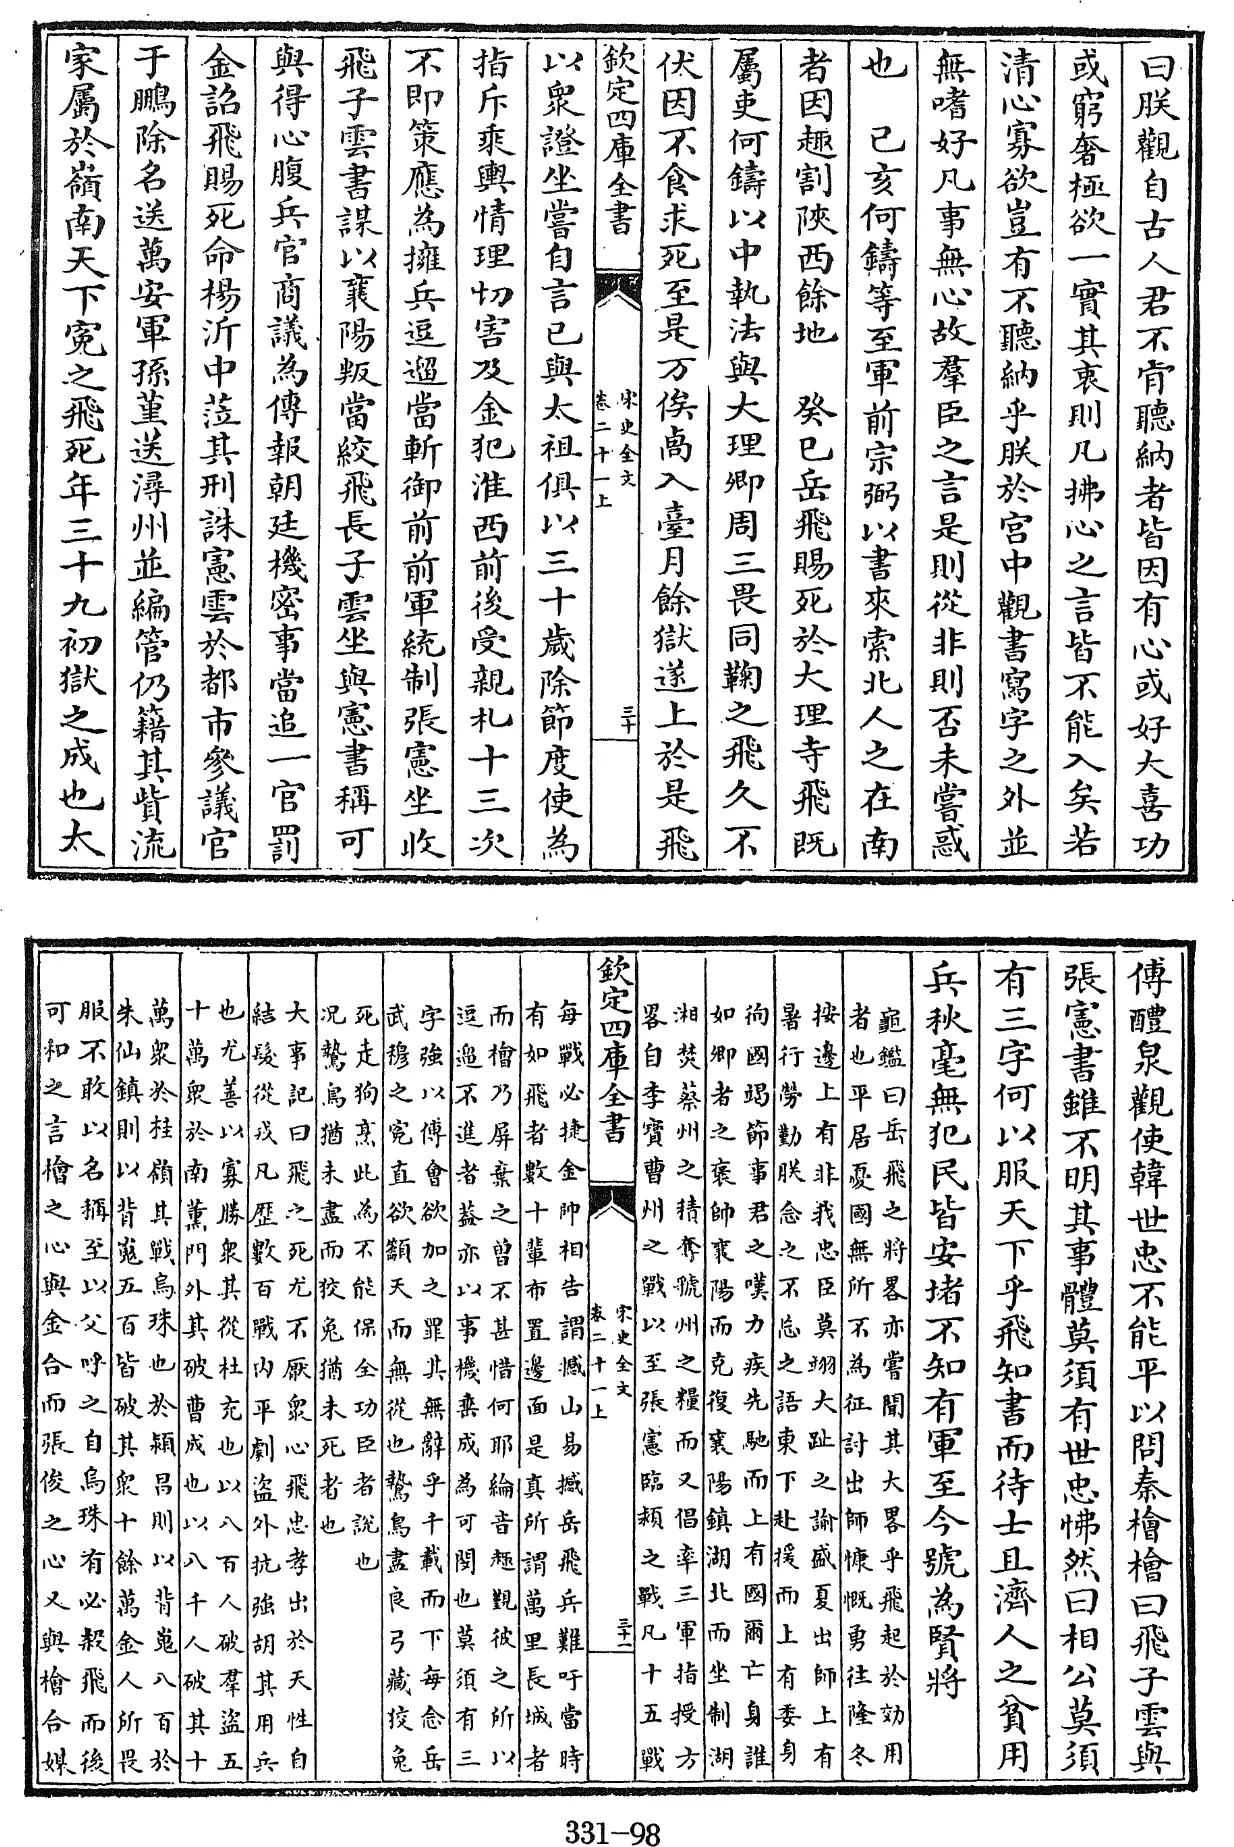 曰朕觀自古人君不肯聽納者皆因有心或好大喜功
或窮奢極欲一實其衷則凡拂心之言皆不能入矣若
清心寡欲豈有不聽納乎朕於宮中觀書寫字之外並
無嗜好凡事無心故羣臣之言是則從非則否未嘗惑
也　己亥何鑄等至軍前宗弼以書來索北人之在南
者因趣割陝西餘地　癸巳岳飛賜死於大理寺飛既
屬吏何鑄以中執法與大理卿周三畏同鞫之飛久不
伏因不食求死至是万俟卨入臺月餘獄遂上於是飛
欽定四庫全書
宋史全文
卷二十一上
三十
以衆證坐嘗自言已與太祖俱以三十歲除節度使為
指斥乘輿情理切害及金犯淮西前後受親札十三次
不即策應為擁兵逗遛當斬御前前軍統制張憲坐收
飛子雲書謀以襄陽叛當絞飛長子雲坐與憲書稱可
與得心腹兵官商議為傳報朝廷機密事當追一官罰
金詔飛賜死命楊沂中蒞其刑誅憲雲於都市參議官
于鵬除名送萬安軍孫堇送潯州並編管仍籍其貲流
家屬於嶺南天下寃之飛死年三十九初獄之成也太
傅醴泉觀使韓世忠不能平以問秦檜檜曰飛子雲與
張憲書雖不明其事體莫須有世忠怫然曰相公莫須
有三字何以服天下乎飛知書而待士且濟人之貧用
兵秋毫無犯民皆安堵不知有軍至今號為賢將
龜鑑曰岳飛之將畧亦嘗聞其大畧乎飛起於効用
者也平居憂國無所不為征討出師慷慨勇往隆冬
按邊上有非我忠臣莫翊大趾之諭盛夏出師上有
暑行勞勤朕念之不忘之語東下赴援而上有委身
徇國竭節事君之嘆力疾先馳而上有國爾亡身誰
如卿者之褒帥襄陽而克復襄陽鎮湖北而坐制湖
湘焚蔡州之積奪虢州之糧而又倡率三軍指授方
畧自李寶曹州之戰以至張憲臨頴之戰凡十五戰
欽定四庫全書
宋史全文
卷二十一上
三十一
每戰必捷金帥相告謂撼山易撼岳飛兵難吁當時
有如飛者數十輩布置邊面是真所謂萬里長城者
而檜乃屏棄之曾不甚惜何耶綸音趣覲彼之所以
逗遛不進者葢亦以事機垂成為可閔也莫須有三
字強以傅會欲加之罪其無辭乎千載而下每念岳
武穆之寃直欲籲天而無從也鷙鳥盡良弓藏狡兔
死走狗烹此為不能保全功臣者說也
况鷙鳥猶未盡而狡兔猶未死者也
大事記曰飛之死尤不厭衆心飛忠孝出於天性自
結髮從戎凡歷數百戰内平劇盜外抗強胡其用兵
也尤善以寡勝衆其從杜充也以八百人破羣盜五
十萬衆於南薰門外其破曹成也以八千人破其十
萬衆於桂嶺其戰烏珠也於頴昌則以背嵬八百於
朱仙鎮則以背嵬五百皆破其衆十餘萬金人所畏
服不敢以名稱至以父呼之自烏珠有必殺飛而後
可和之言檜之心與金合而張俊之心又與檜合媒
331-98